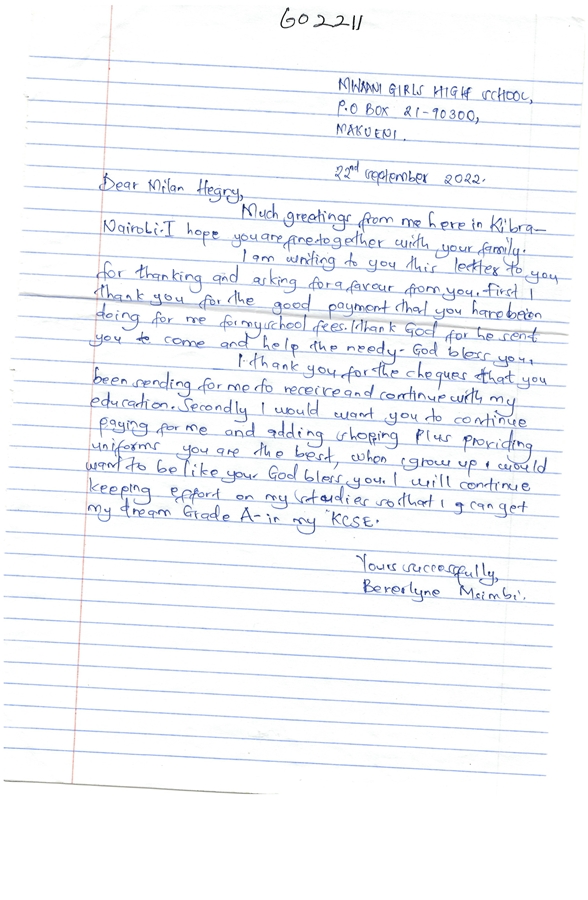 602211
MWAANI GIRLS HIGH SCHOOL,
P.O BOX 21-90300,
MAKUENI.
22nd september 2022.
Dear Milan Hegry,
Much greetings from me here in Kibra-
Nairobi.I hope you are fine together with your family.
I am writing to you this letter to you
for thanking and asking for a favour from you. First I
thank you for the good payment that you have been
doing for me for my school fees. I thank God for he sent
you to come and help the needy. God bless you.
I thank you for the cheques that you
been sending for me to receive and continue with my
education. Secondly I would want you to continue
paying for me and adding shoping plus providing
uniforms you are the best, when I grow up I would
want to be like your God bless you. I will continue
keeping effort on my studies so that I can get
my dream Grade A- in my KCSE.
Yours successfully,
Beverlyne Msimbi.